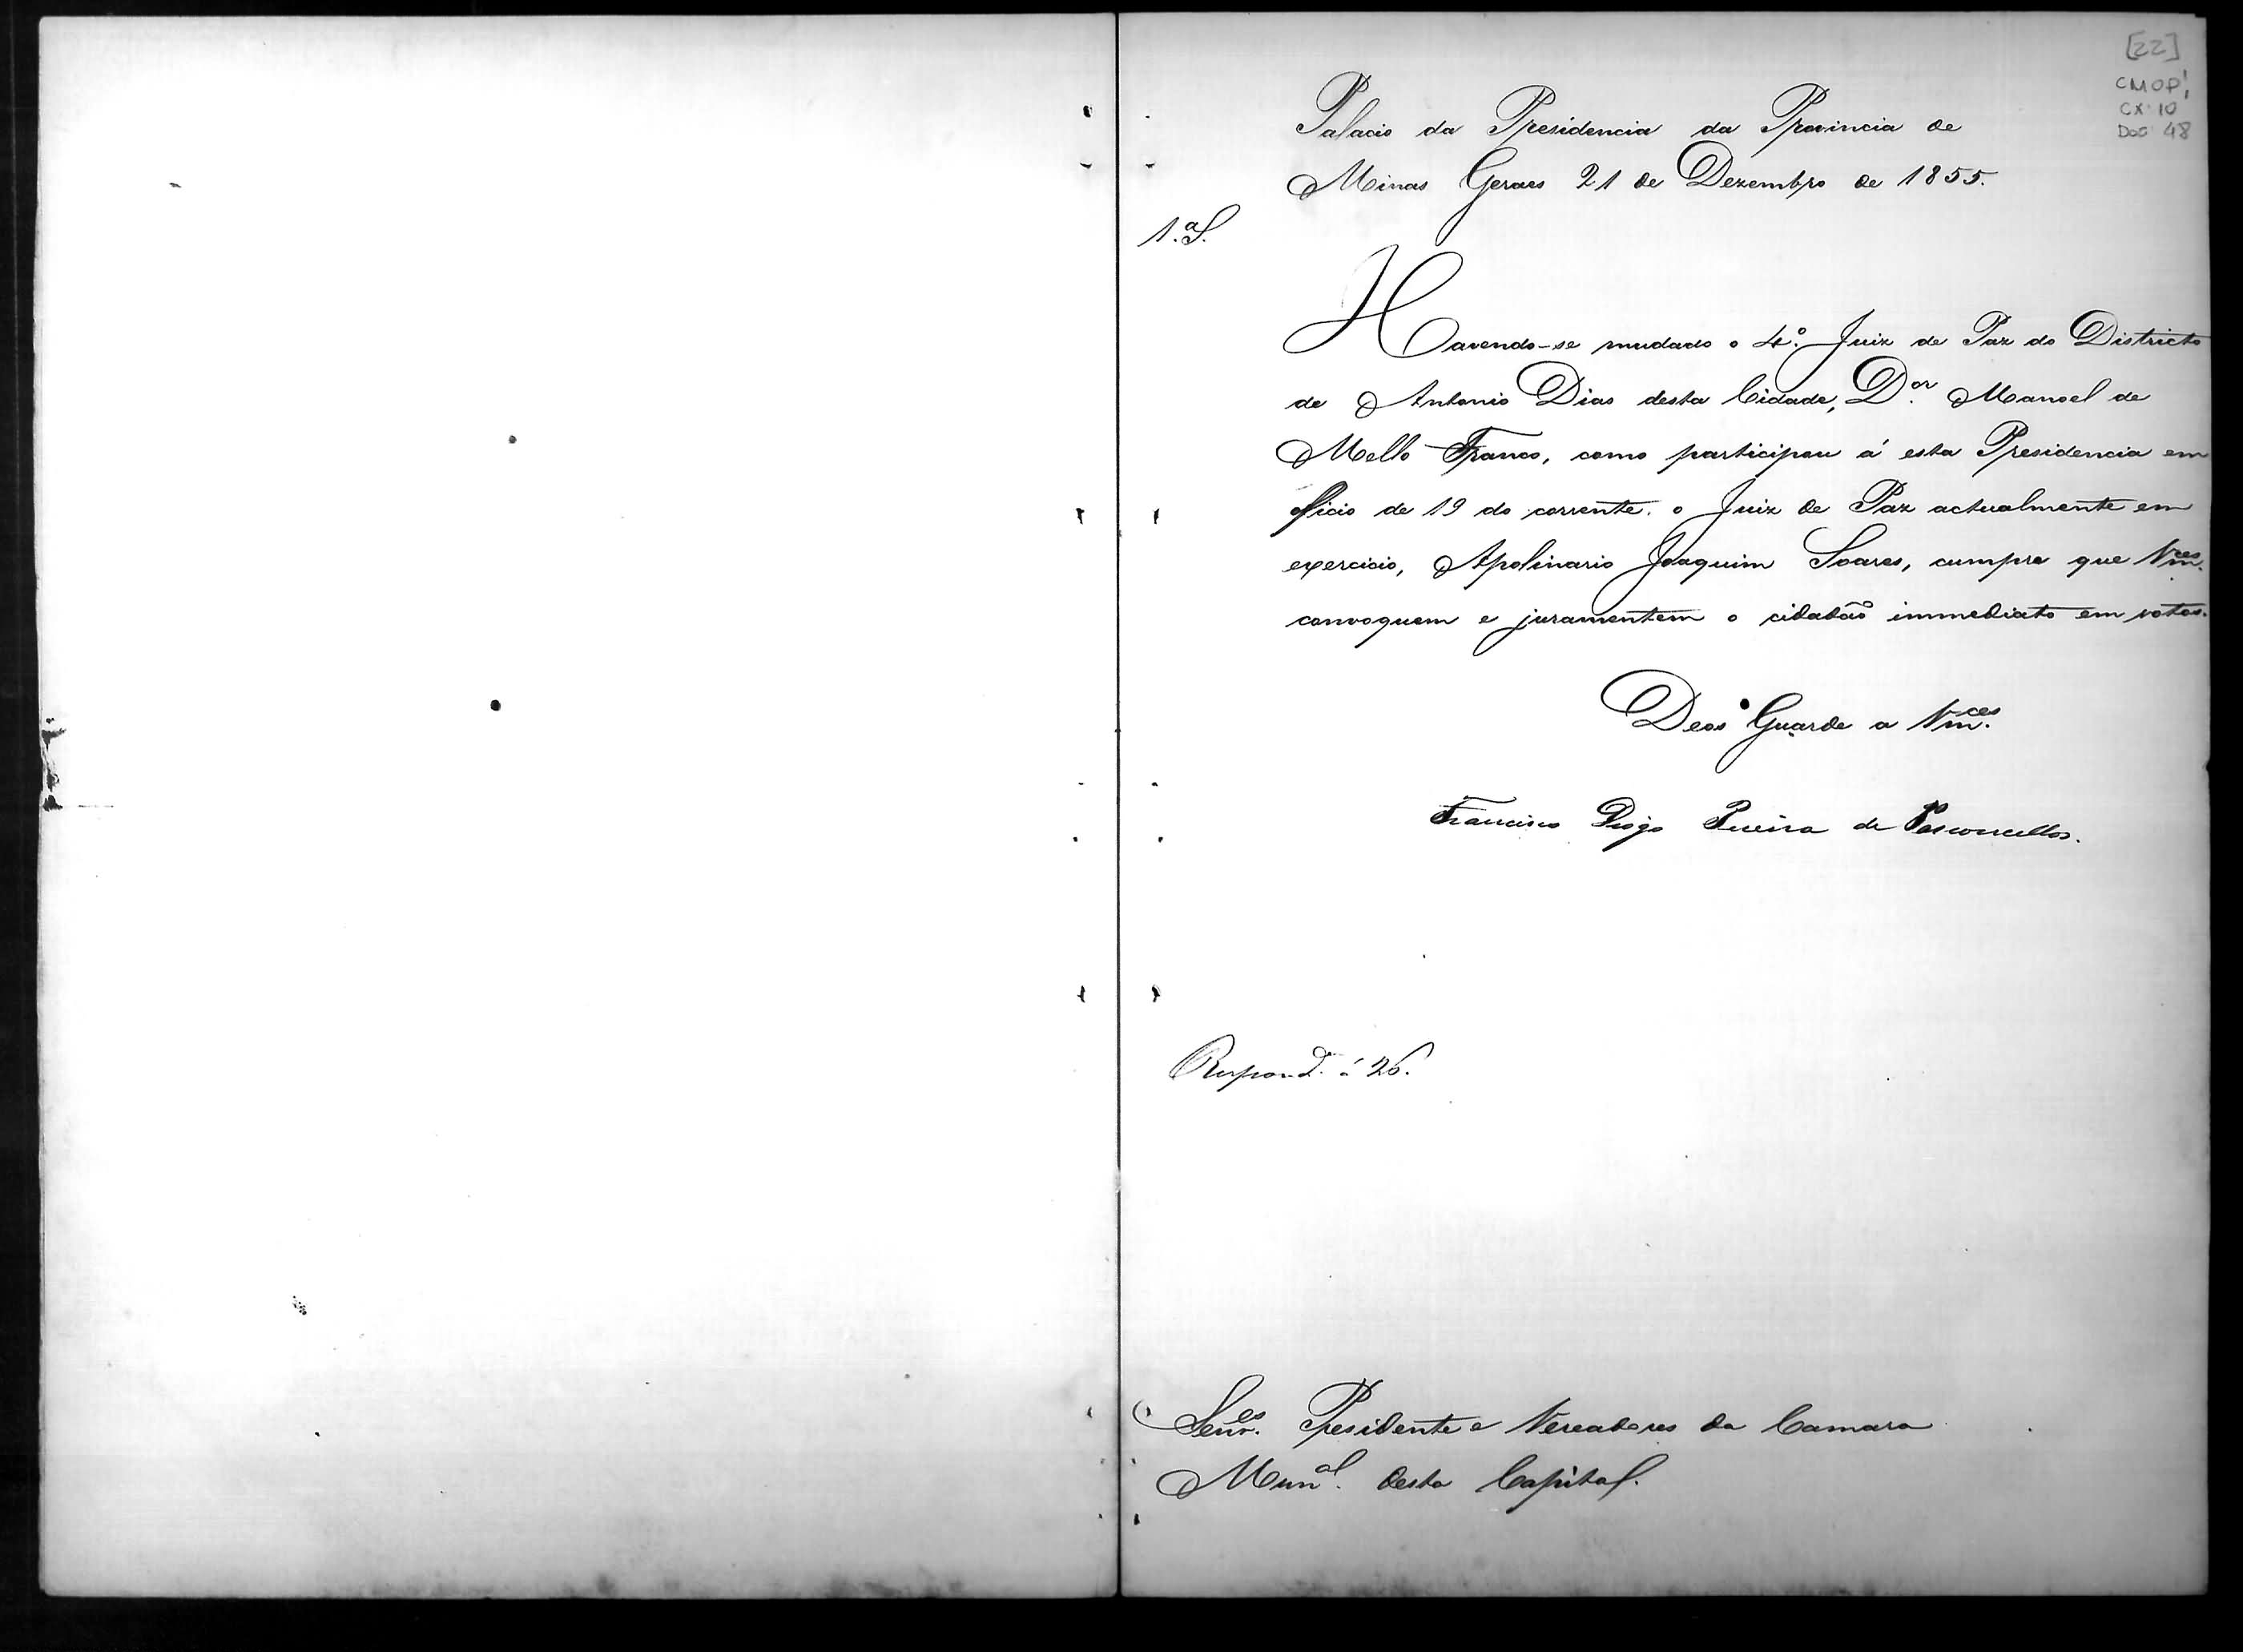 [22]
CMOP
CX 10
Doc 48
Palacio da Presidencia da Provincia de
Minas Geraes 21 de Dezembro de 1855.
1.ª S.
Havendo-se mudado o 4.º Juiz de Paz do Districto
de Antonio Dias desta Cidade, D.or Manoel de
Mello Franco, como participou á esta Presidencia em
officio de 19 do corrente. o Juiz de Paz actualmente em
exercicio, Apolinario Joaquim Soares, cumpre que Vm.ces
convoquem e juramentem o cidadão immediato em votos.
Deos Guarde a Vm.ces
Francisco Diogo Pereira de Vasconcellos.
Respond.do á 26.
Senr.es Presidente e Vereadores da Camara
Mun.al desta Capital.